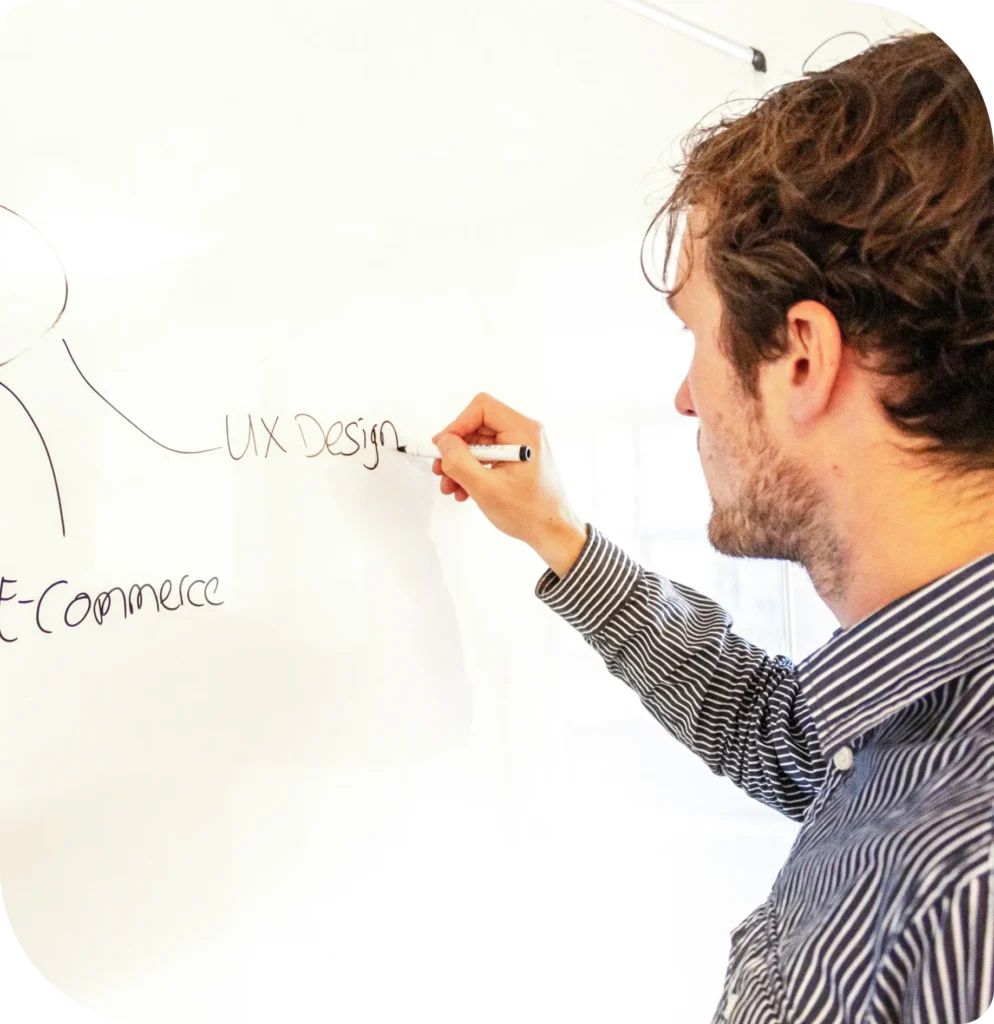 UX Design
E-Commerce